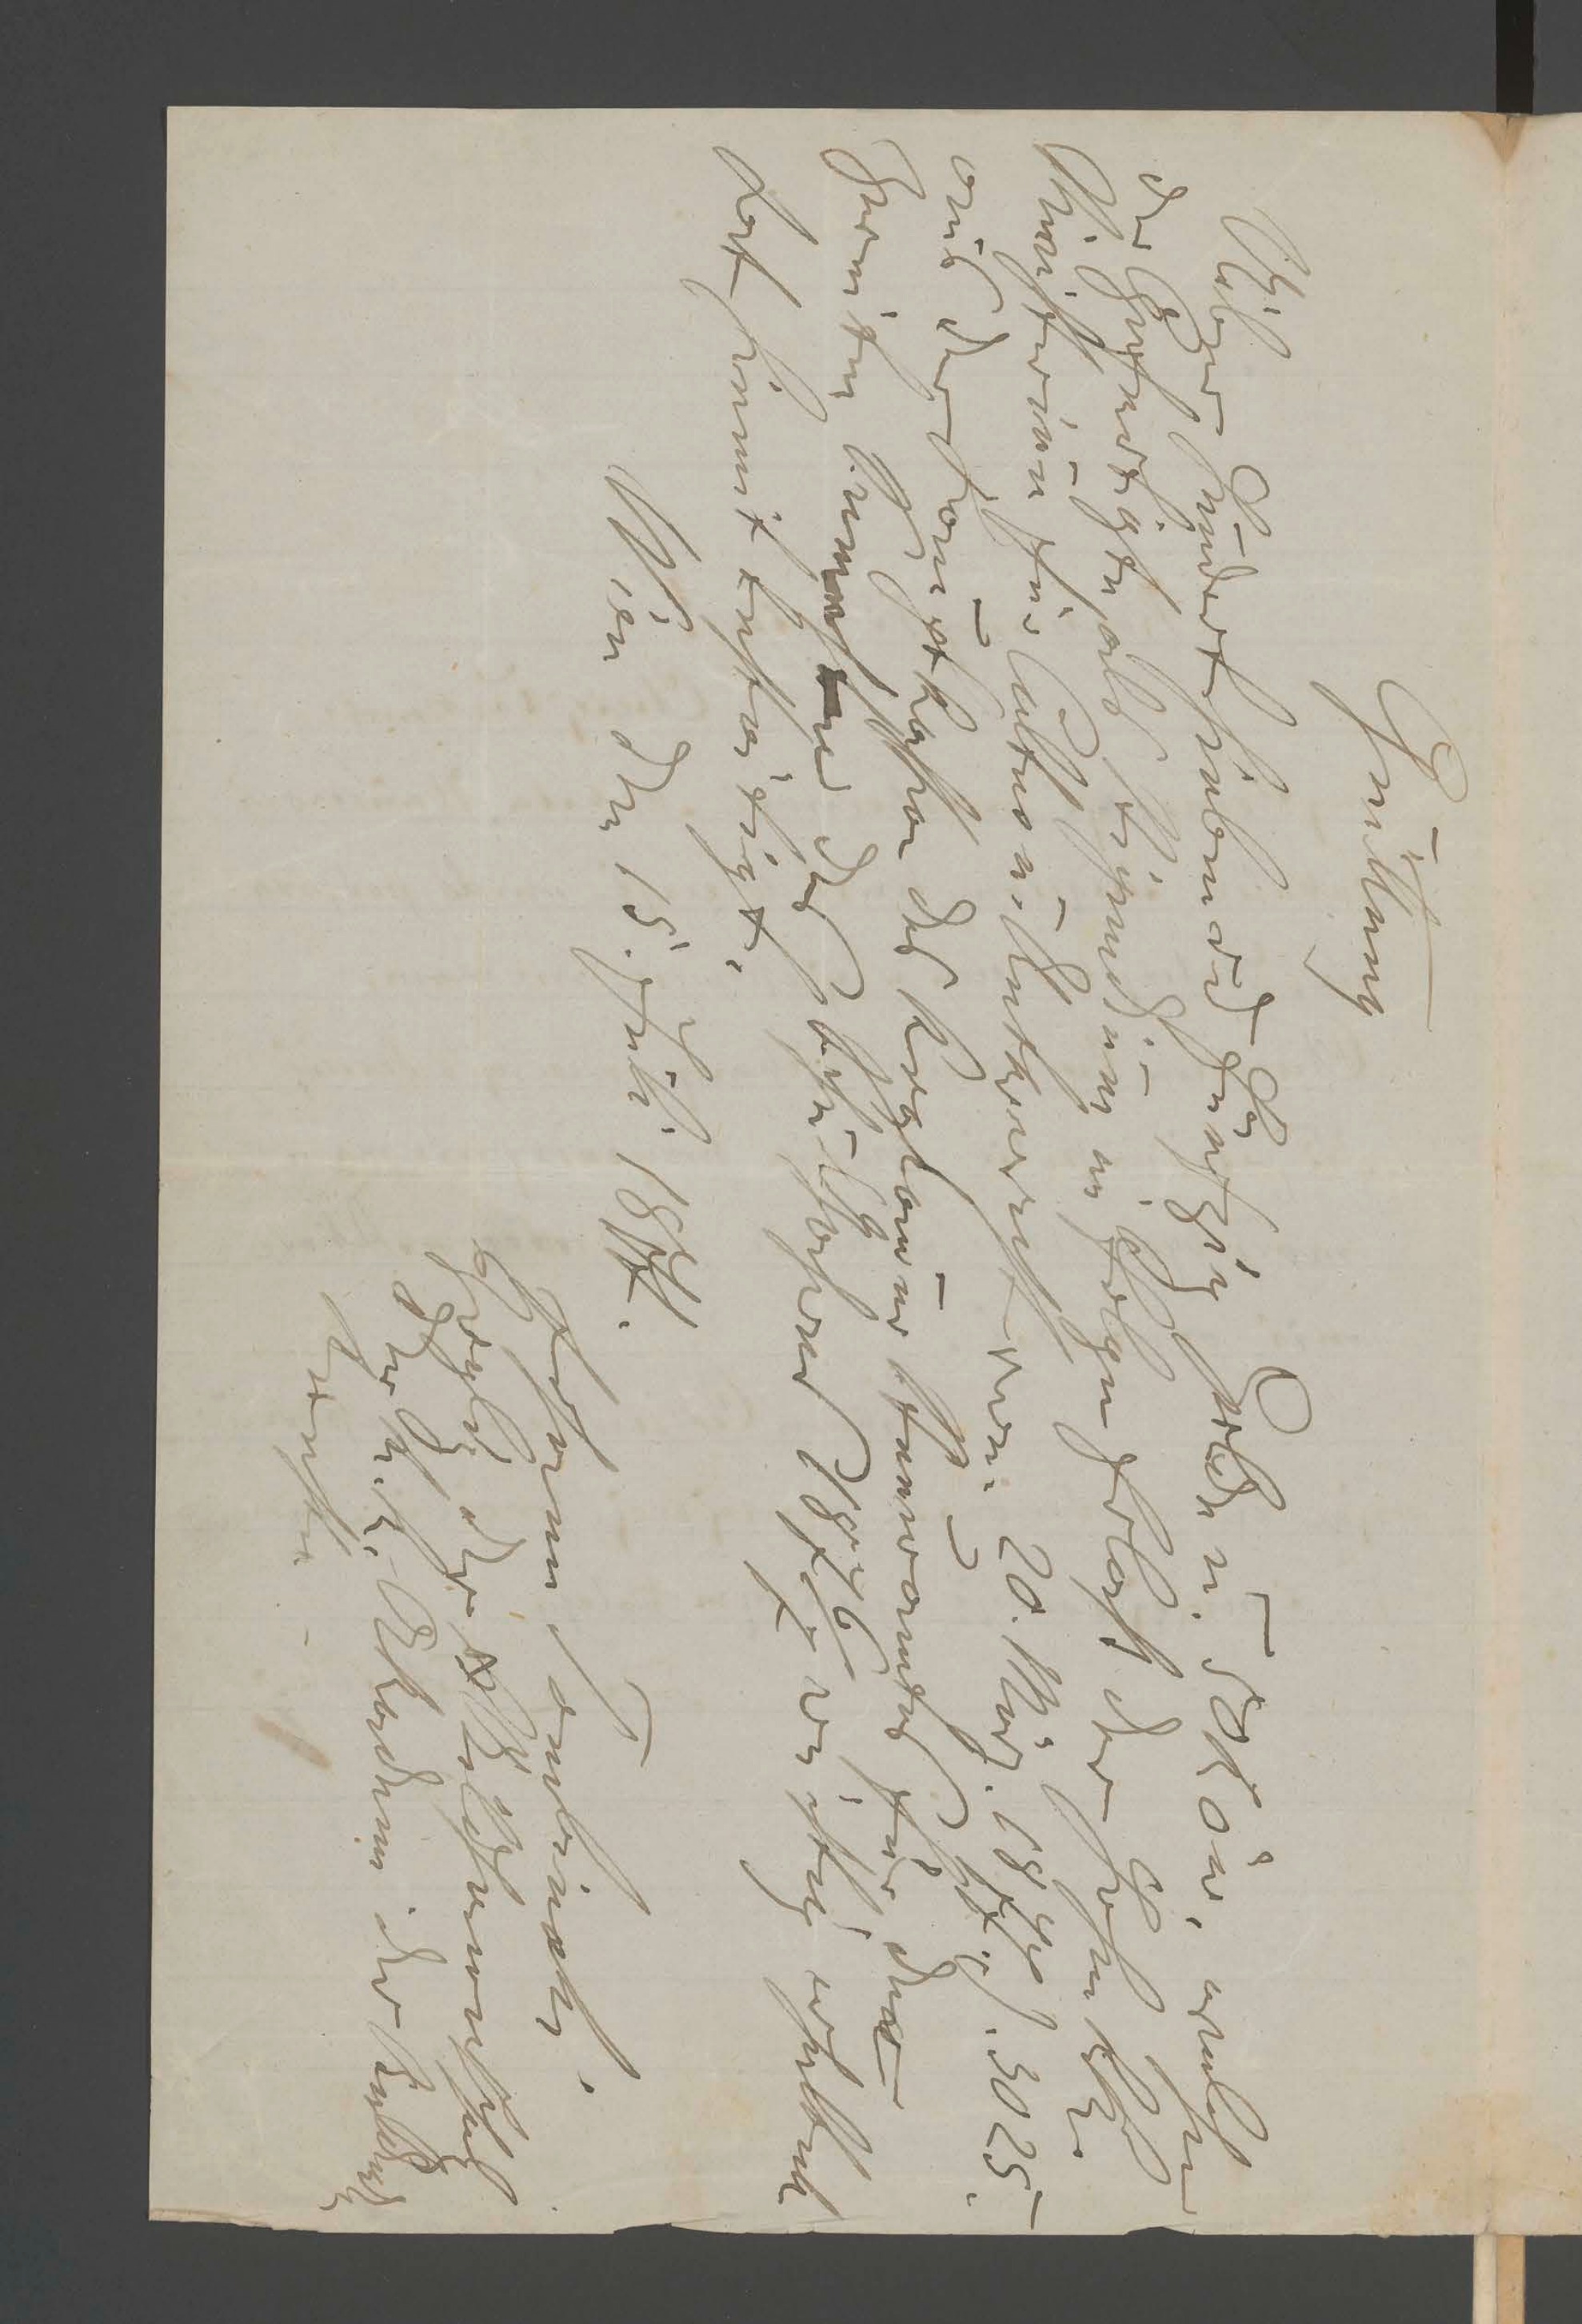 Quittung
Über Hundert siebenundfünfzig Gulden u. 50 Kör, welche
der Gefertigte als Stipendium in Folge Erlaß des hohen k. k.
Ministerium für Cultus u. Unterricht vom 20. März. 1877 Z. 3025.
aus der Hauptkasse des Krakauer Steueramtes für den
zweiten Semester des Schuljahres 1876/7 richtig erhalten
hat hiemit bestätigt.
Wien den 15. Juli 1877.
Hermann
Zögling der Bildhauerschule
der k. k. Akademie der bildenden
Künste.